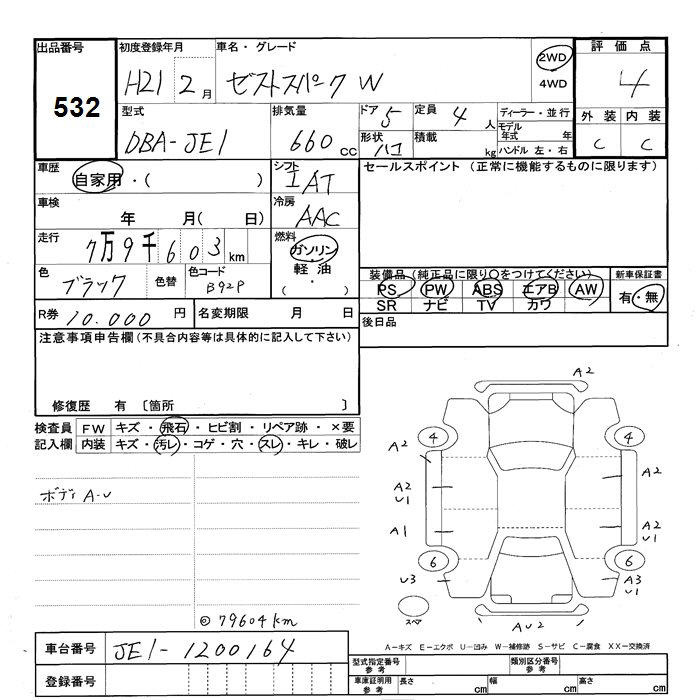 出品番号 初度登録年月 車名・グレード 2WD 評価点
532 H21 2月 ゼストスパーク W 4WD 4
型式 排気量 ドア 5 定員 4人 ディーラー・並行 外装 内装
DBA-JE1 660cc 形状 ハコ 積載 kg モデル年式 年 C C
ハンドル 左・右
車歴 自家用・( ) シフト IAT セールスポイント (正常に機能するものに限ります)
車検 年 月( 日) 冷房 AAC
走行 7万9千603km 燃料 ガソリン
軽油
( ・ )
色 ブラック 色替 色コード B92P
装備品 (純正品に限り○をつけてください) 新車保証書
PS PW ABS エアB AW 有・無
SR ナビ TV カワ
R券 10,000円 名変期限 月 日 後日品
注意事項申告欄 (不具合内容等は具体的に記入して下さい)
修復歴 有 〔箇所 〕
検査員 FW キズ・飛石・ヒビ割・リペア跡・×要
記入欄 内装 キズ・汚レ・コゲ・穴・スレ・キレ・破レ
ボディ A-U
A2
4 4
A2 A2
A2 U1
A1 A2 U1
6 6
U3 A3 U1
スペア AU2
◎79604km
A-キズ E-エクボ U-凹み W-補修跡 S-サビ C-腐食 XX-交換済
車台番号 JE1-1200164
型式指定番号 参考 類別区分番号 参考
登録番号 車庫証明用 参考 長さ cm 幅 cm 高さ cm